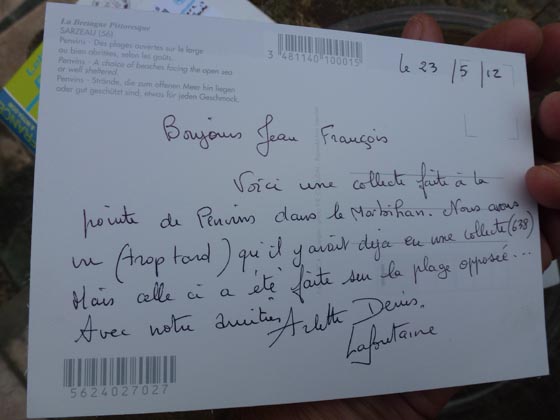 La Bretagne Pittoresque
SARZEAU (56)
Penvins - Des plages ouvertes sur le large
ou bien abritées, selon les goûts.
Penvins - A choice of beaches facing the open sea
or well sheltered.
Penvins - Strände, die zum offenen Meer hin liegen
oder gut geschützt sind, etwas für jeden Geschmack.
3 481140 100015
le 23 /5 /12
Bonjour Jean François
Voici une collecte faite à la
pointe de Penvins dans le Morbihan. Nous avons
vu (trop tard) qu'il y avait déja eu une collecte (638)
Mais celle ci a été faite sur la plage opposée...
Avec notre amitiés Arlette Denis.
Lafontaine
5624027027